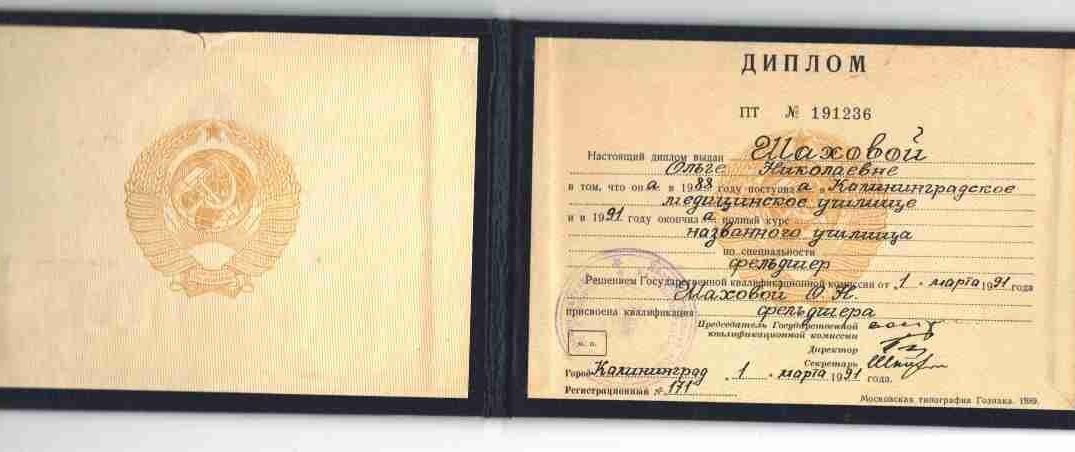 ДИПЛОМ
ПТ № 191236
Настоящий диплом выдан Шаховой
Ольге Николаевне
в том, что она в 1988 году поступила в Калининградское
медицинское училище
и в 1991 году окончила полный курс
названного училища
по специальности
фельдшер
Решением Государственной квалификационной комиссии от 1 марта 1991 года
Маховой О.Н.
присвоена квалификация фельдшера
Председатель Государственной
квалификационной комиссии
Директор
М. П.
Секретарь
Город Калининград 1 марта 1991 года.
Регистрационный № 171
Московская типография Гознака. 1989.